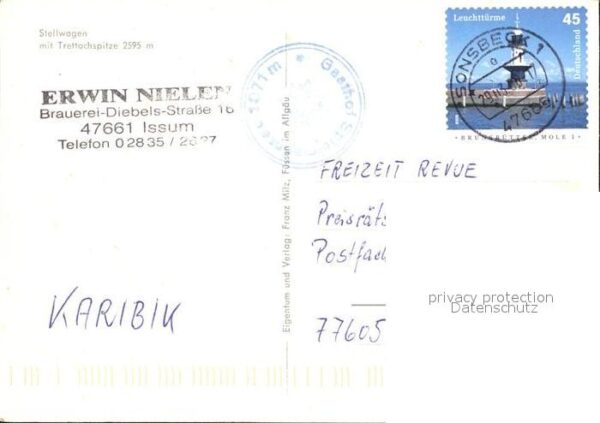 Stellwagen
mit Trettachspitze 2595 m
ERWIN NIELEN
Brauerei-Diebels-Straße 16
47661 Issum
Telefon 0 28 35 /
Gasthof
1971 m
Eigentum und Verlag: Franz Milz, Füssen im Allgäu
KARIBIK
Leuchttürme
45
Deutschland
BRUNSBÜTTEL, MOLE 1
SONSBECK 1
FREIZEIT REVUE
Preisrätz
Postfach
77605
privacy protection
Datenschutz